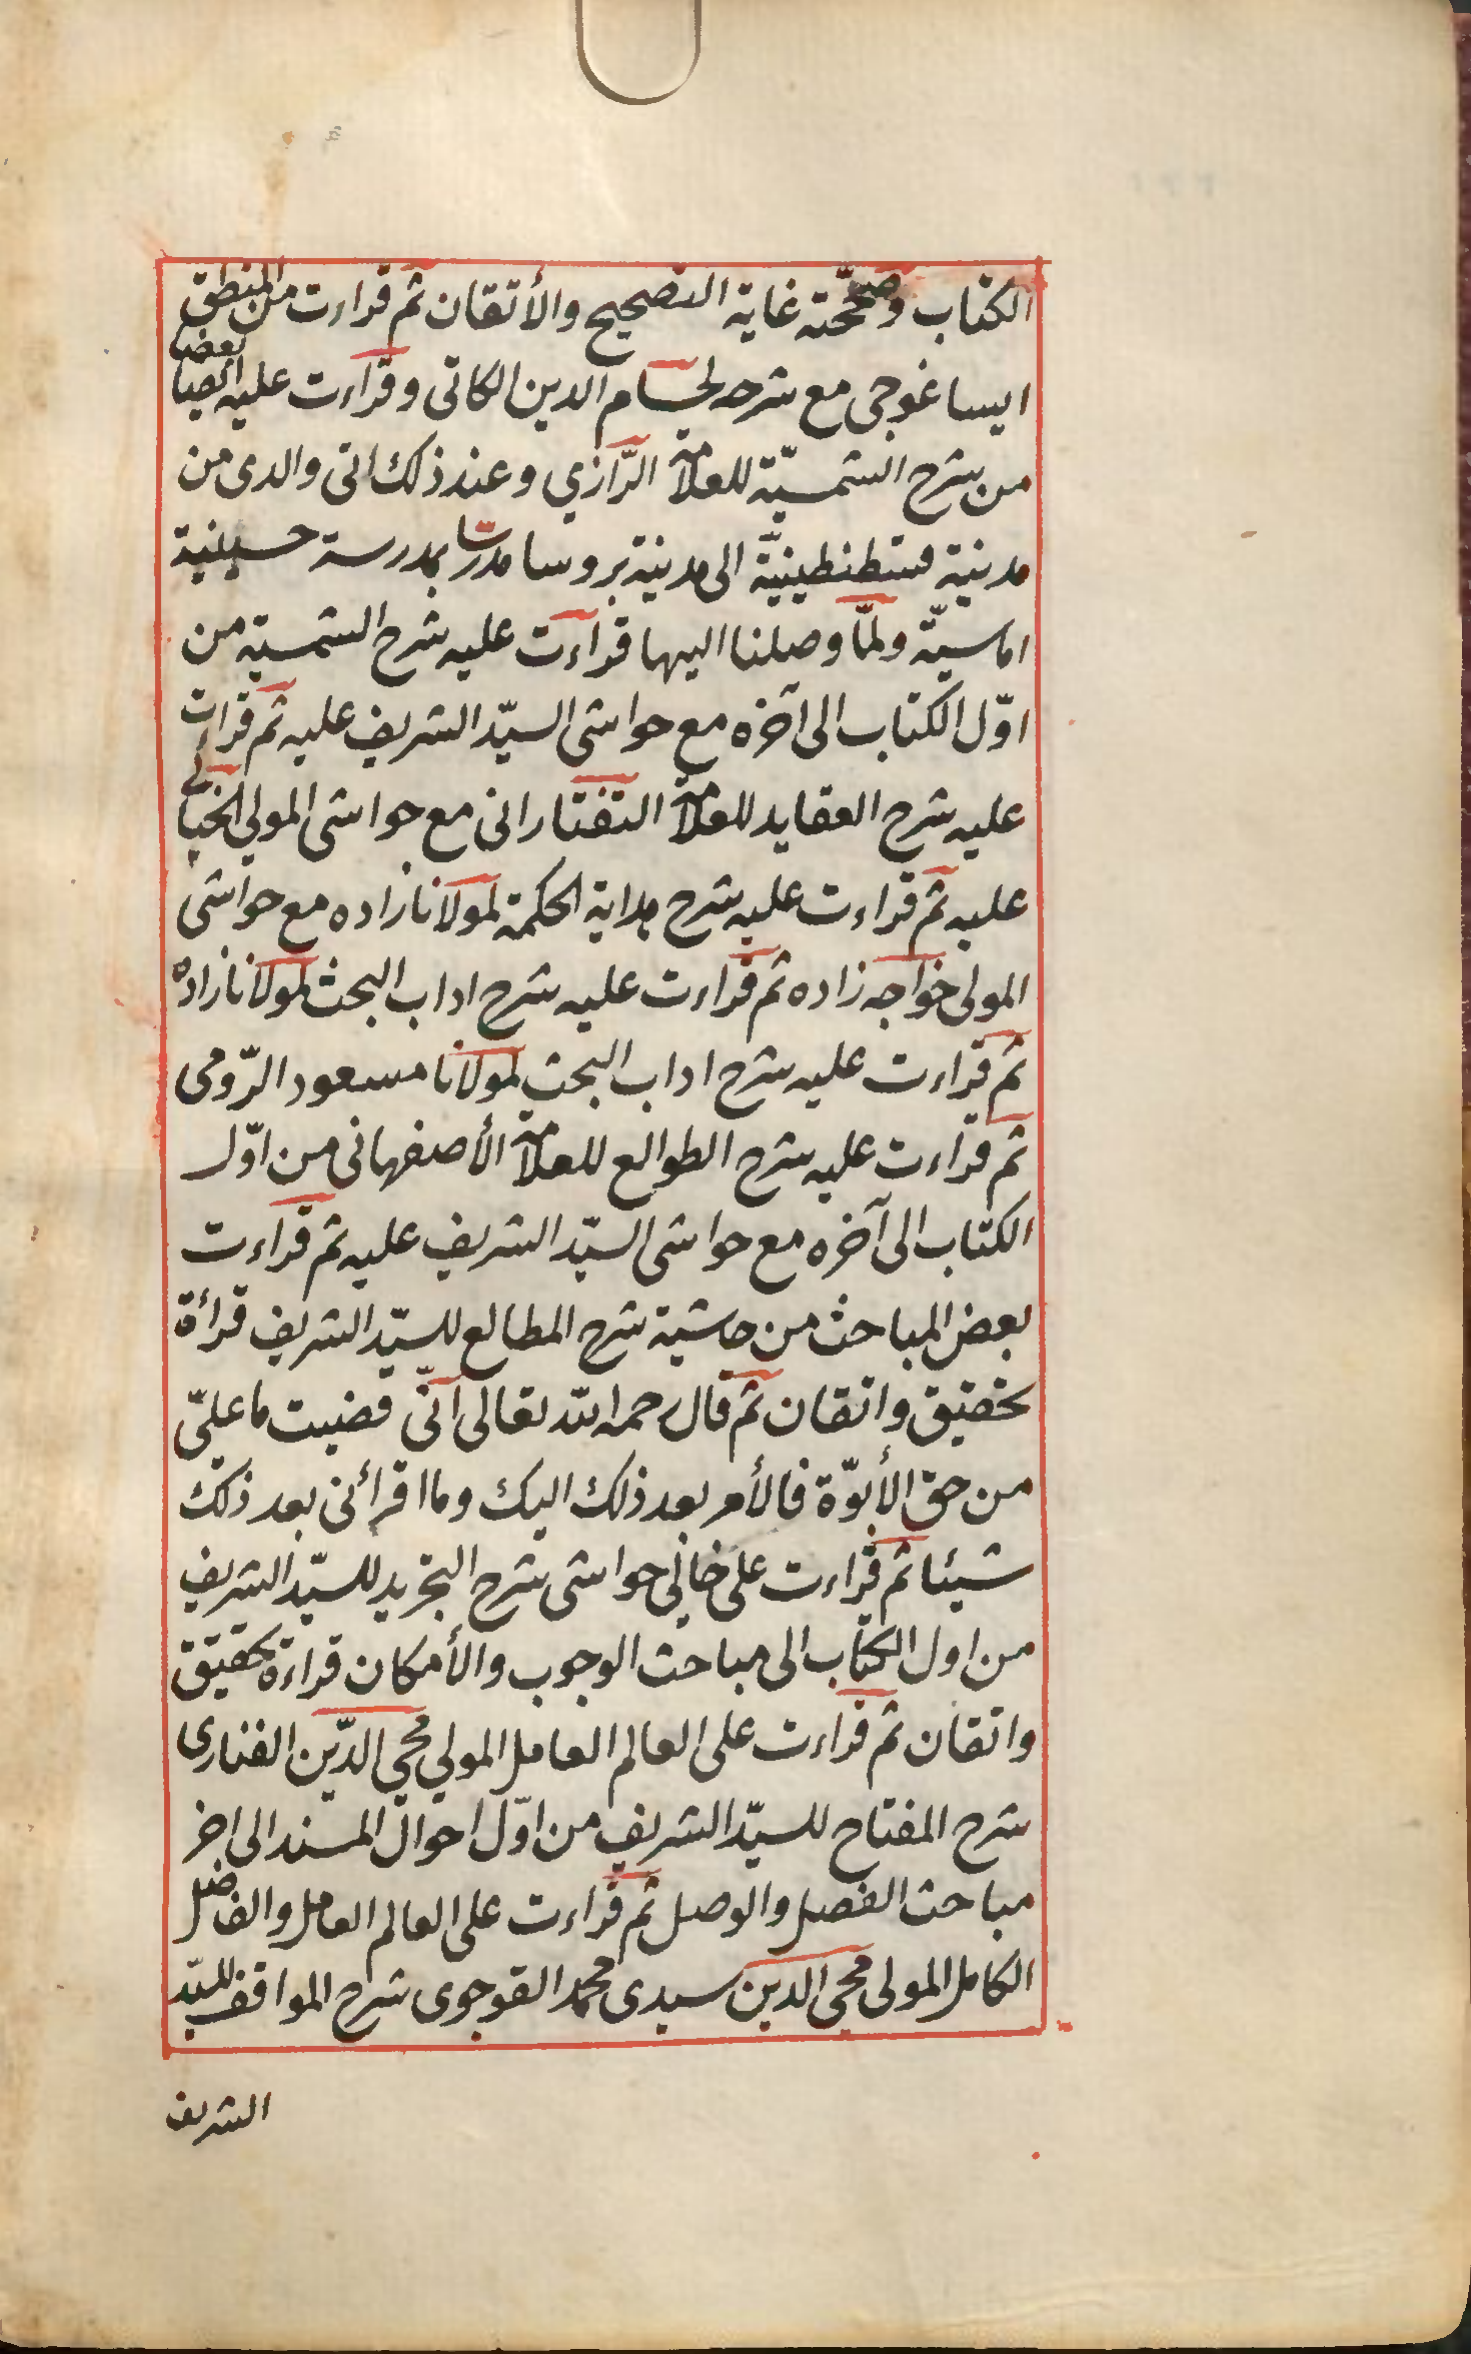 الكتاب وصححته غاية التصحيح والأتقان ثم قراءت من المنطق
ايساغوجى مع شرحه لحسام الدين الكاتى وقراءت عليه ايضا بعضا
من شرح الشمسيّة للعلامة الرّازي وعند ذلك اتى والدى من
مدينية قسطنطينيّة الى مدينية بروسا مدرسا بمدرسة حسينية
اماسيّة ولمّا وصلنا اليها قراءت عليه شرح الشمسية من
اوّل الكتاب الى آخره مع حواشى السيّد الشريف عليه ثم قرات
عليه شرح العقايد للعلامة التفتازانى مع حواشى المولي الخيالي
عليه ثم قراءت عليه شرح هداية الحكمة لمولانا زاده مع حواشى
المولى خواجه زاده ثم قراءت عليه شرح اداب البحث لمولانا زاده
ثم قراءت عليه شرح اداب البحث لمولانا مسعود الرّومى
ثم قراءت عليه شرح الطوالع للعلامة الأصفهانى من اوّل
الكتاب الى آخره مع حواشى السيّد الشريف عليه ثم قراءت
بعض المباحث من حاشية شرح المطالع للسيّد الشريف قرأة
تحقيق واتقان ثم قال رحمه الله تعالى انّى قضيت ما علىّ
من حق الأبوّة فالأمر بعد ذلك اليك وما اقرأنى بعد ذلك
شيئا ثم قراءت على خالى حواشى شرح التجريد للسيّد الشريف
من اول الكتاب الى مباحث الوجوب والأمكان قراءة تحقيق
واتقان ثم قراءت على العالم العامل المولي محي الدّين الفنارى
شرح المفتاح للسيّد الشريف من اوّل احوال المسند الى اخر
مباحث الفصل والوصل ثم قراءت على العالم العامل والفاضل
الكامل المولى محي الدين سيدى محمد القوجوى شرح المواقف للسيّد
الشريف